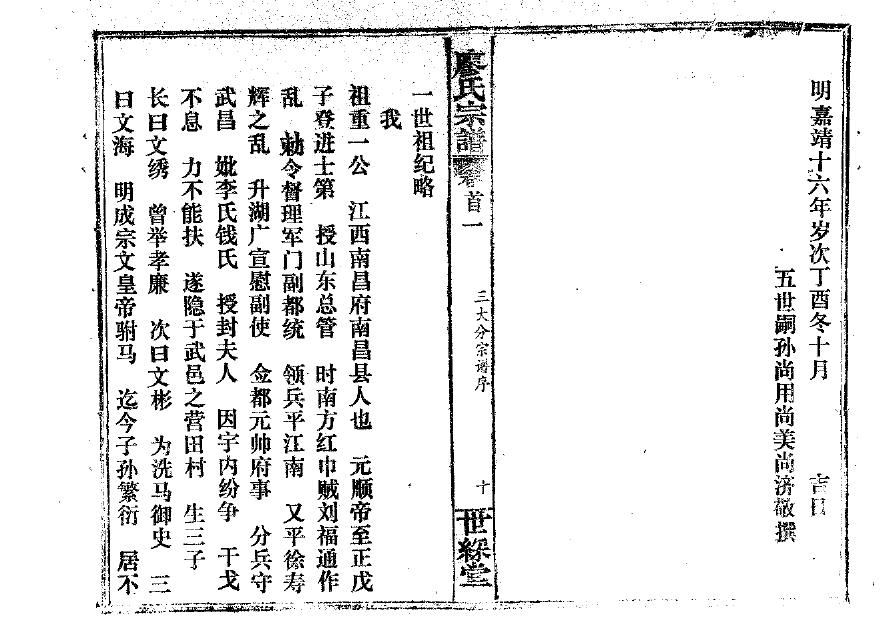 明嘉靖十六年岁次丁酉冬十月 吉日
五世嗣孙尚用尚美尚济敬撰
廖氏宗谱 卷首一 三大分宗谱序 十 世綵堂
一世祖纪略
我
祖重一公 江西南昌府南昌县人也 元顺帝至正戊
子登进士第 授山东总管 时南方红巾贼刘福通作
乱 勅令督理军门副都统 领兵平江南 又平徐寿
辉之乱 升湖广宣慰副使 佥都元帅府事 分兵守
武昌 妣李氏钱氏 授封夫人 因宇内纷争 干戈
不息 力不能扶 遂隐于武邑之营田村 生三子
长曰文绣 曾举孝廉 次曰文彬 为洗马御史 三
曰文海 明成宗文皇帝驸马 迄今子孙繁衍 居不